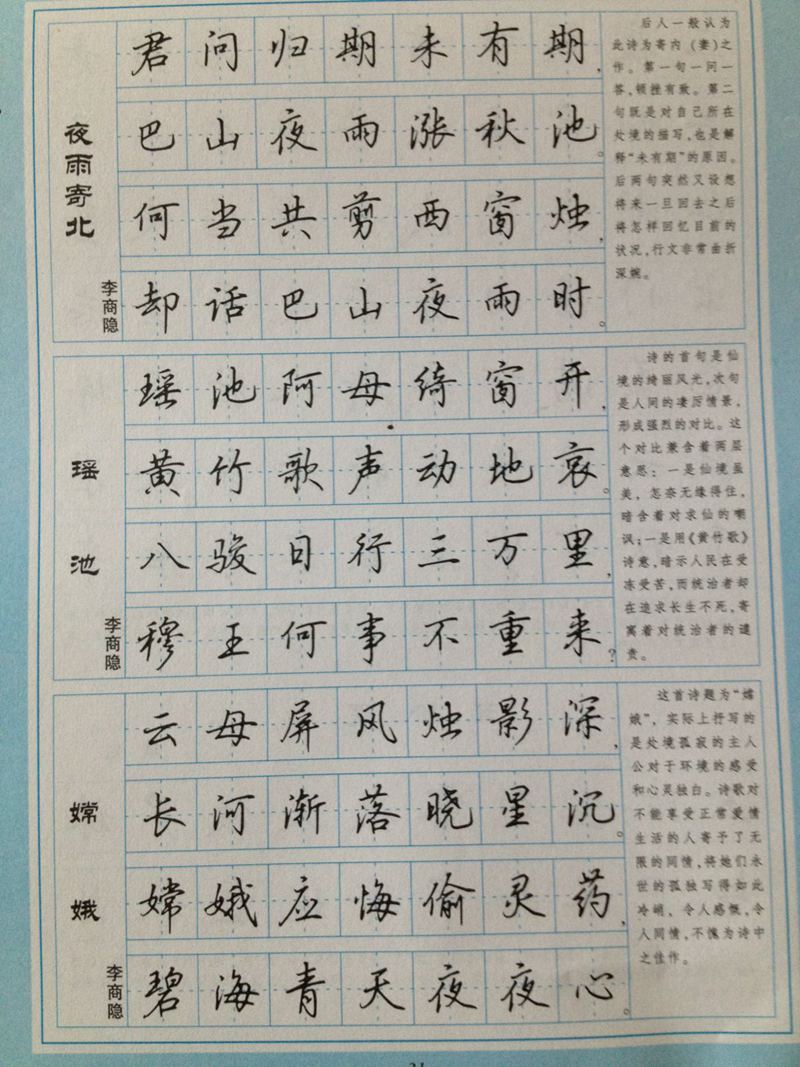 夜雨寄北
李商隐
君问归期未有期，
巴山夜雨涨秋池。
何当共剪西窗烛，
却话巴山夜雨时。
后人一般认为
此诗为寄内（妻）之
作。第一句一问一
答，顿挫有致。第二
句既是对自己所在
处境的描写，也是解
释“未有期”的原因。
后两句突然又设想
将来一旦回去之后
将怎样回忆目前的
状况，行文非常曲折
深婉。
瑶池
李商隐
瑶池阿母绮窗开，
黄竹歌声动地哀。
八骏日行三万里，
穆王何事不重来？
诗的首句是仙
境的绮丽风光，次句
是人间的凄厉情景，
形成强烈的对比。这
个对比兼含着两层
意思：一是仙境虽
美，怎奈无缘得住，
暗含着对求仙的嘲
讽；一是用《黄竹歌》
诗意，暗示人民在受
冻受苦，而统治者却
在追求长生不死，寄
寓着对统治者的谴
责。
嫦娥
李商隐
云母屏风烛影深，
长河渐落晓星沉。
嫦娥应悔偷灵药，
碧海青天夜夜心。
这首诗题为“嫦
娥”，实际上抒写的
是处境孤寂的主人
公对于环境的感受
和心灵独白。诗歌对
不能享受正常爱情
生活的人寄予了无
限的同情，将她们永
世的孤独写得如此
冷峭，令人感慨，令
人同情，不愧为诗中
之佳作。